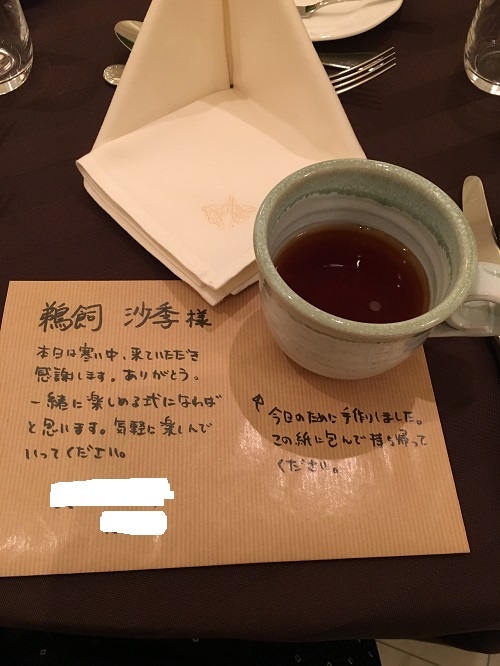 鵜飼 沙季 様
本日は寒い中、来ていただき
感謝します。ありがとう。
一緒に楽しめる式になれば
と思います。気軽に楽しんで
いってください。
今日のために手作りしました。
この紙に包んで持ち帰って
ください。